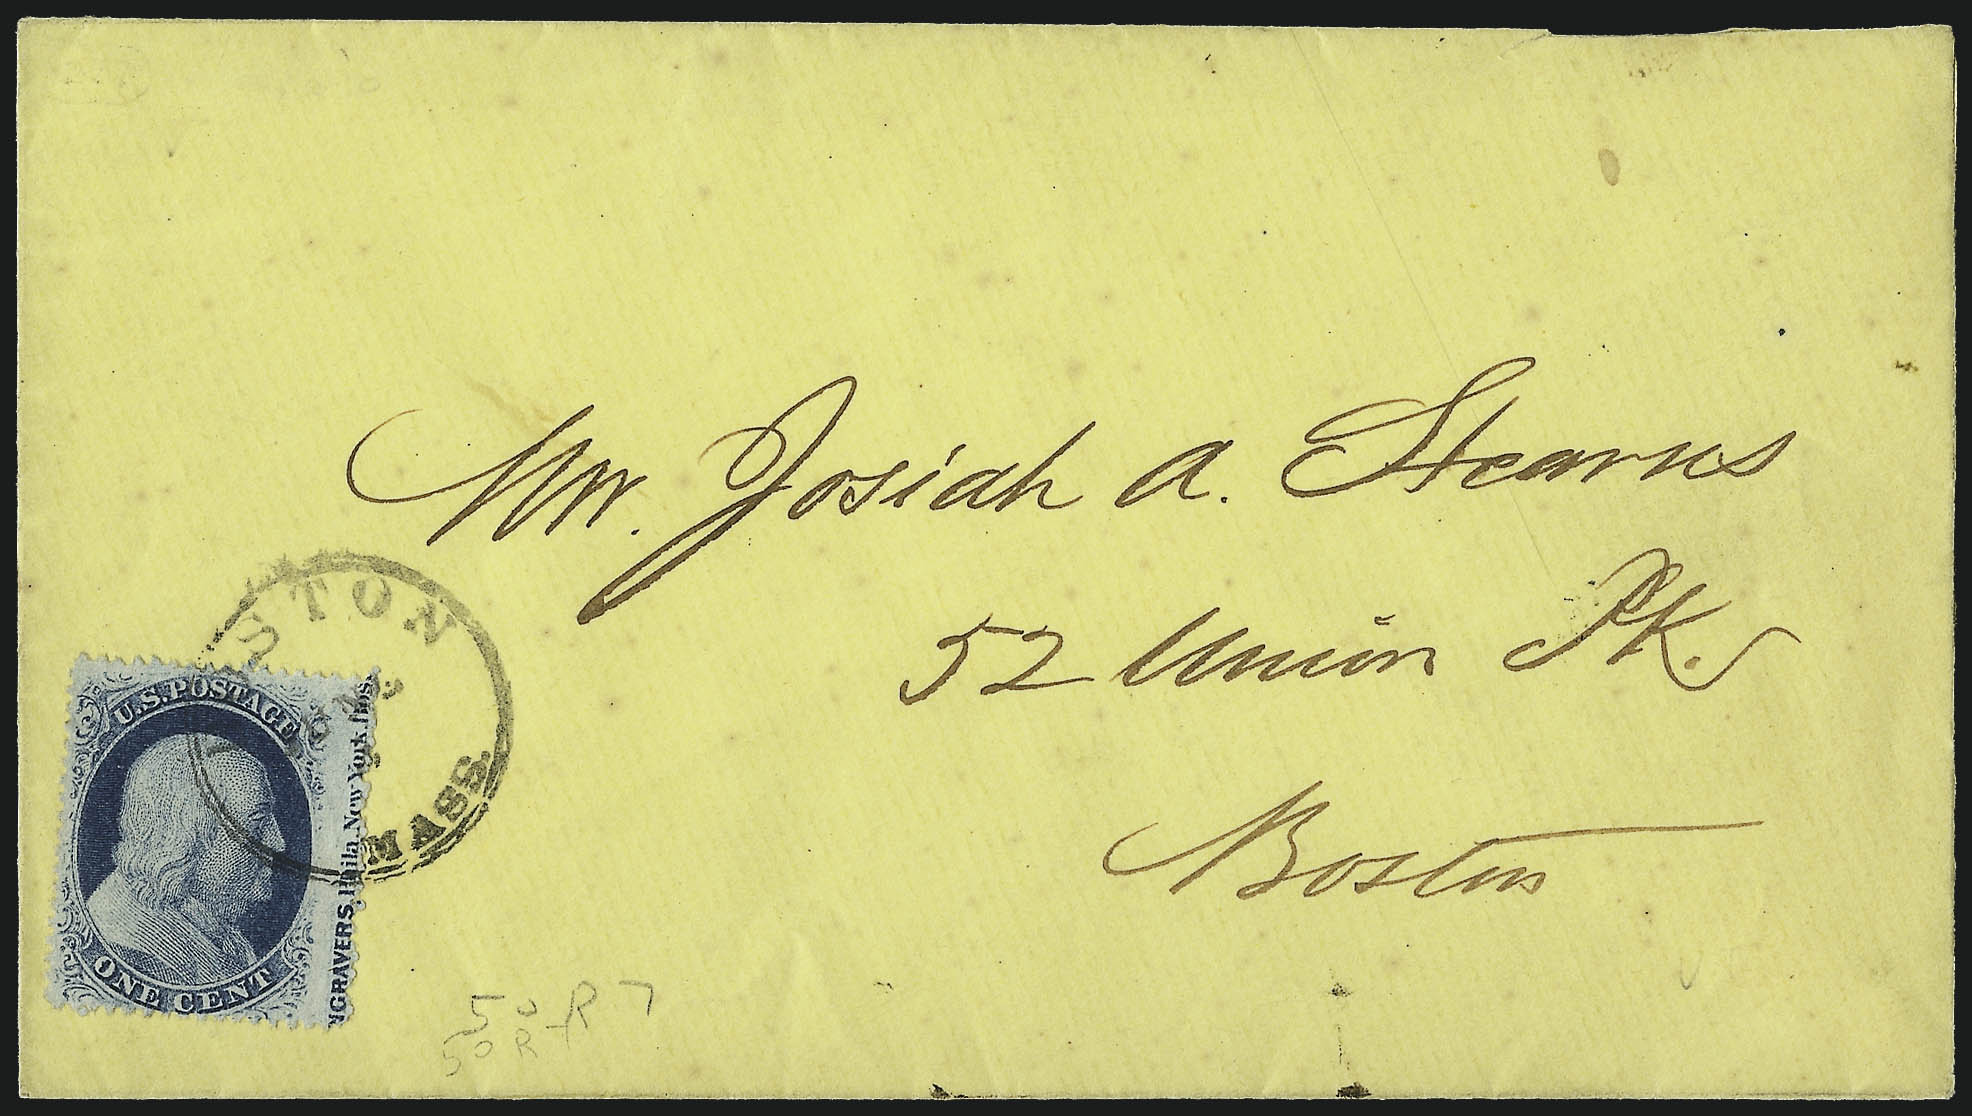 Mr. Josiah A. Stearns
52 Union Pk.
Boston
STON
MASS
U.S. POSTAGE
ONE CENT
NGRAVERS, Phila. New York, Bos
50 R 7
50 R